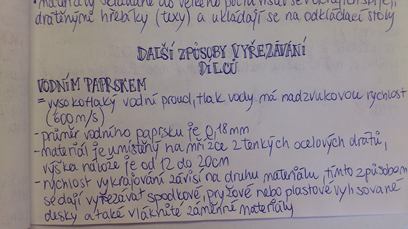 materiály
drátěnými hřebíky (texy) a ukládají se na odkládací stoly
DALŠÍ ZPŮSOBY VYŘEZÁVÁNÍ
DÍLCŮ
VODNÍM PAPRSKEM
= vysokotlaký vodní proud, tlak vody má nadzvukovou rychlost
(600 m/s)
- průměr vodního paprsku je 0,18mm
- materiál je umístěný na mřížce z tenkých ocelových drátů,
výška nálože je od 12 do 20cm
- rychlost vykrajování závisí na druhu materiálu, tímto způsobem
se dají vyřezávat spodkové, pryžové nebo plastové vylisované
desky a také vláknité záměnné materiály